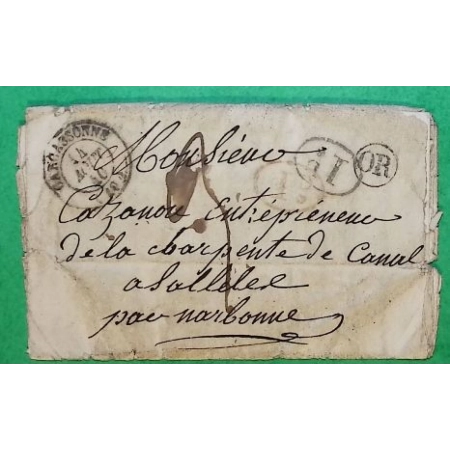 CARCASSONNE
14
AOUT
OR
Monsieur
Cazanou Entrépreneur
de la charpente de Canal
a Sallèles
par narbonne